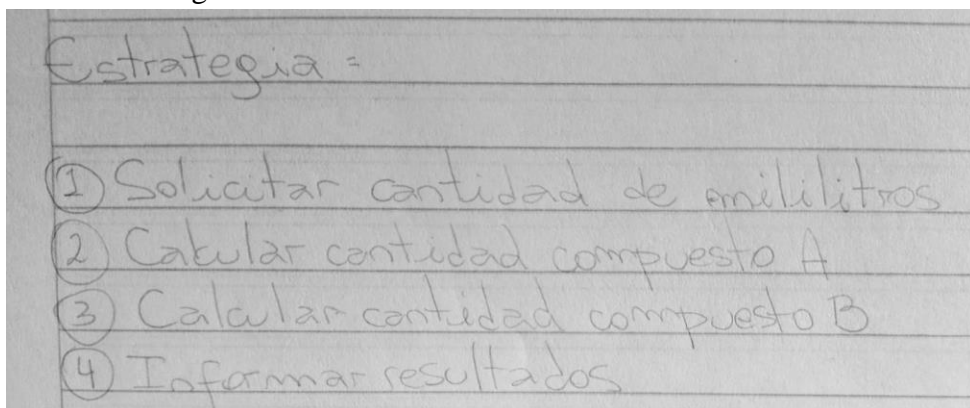 Estrategia:
① Solicitar cantidad de mililitros
② Calcular cantidad compuesto A
③ Calcular cantidad compuesto B
④ Informar resultados